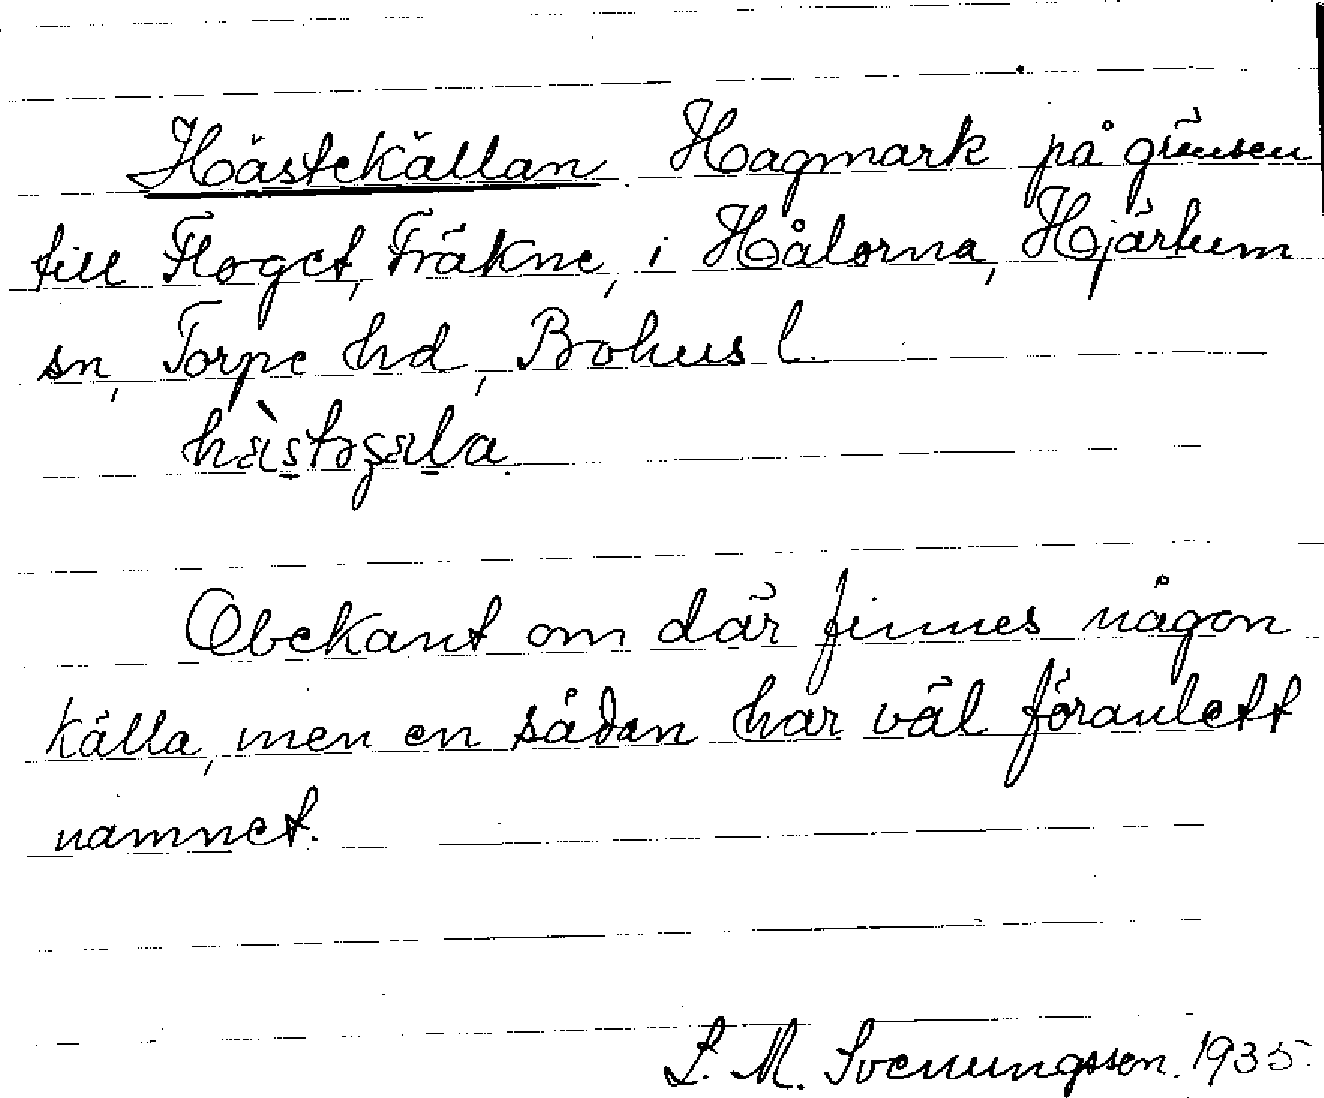 Hästekällan. Hagmark på gränsen
till Floget, Fräkne, i Hålorna, Hjärtum
sn, Torpe hd, Bohus l.
Obekant om där finnes någon
källa, men en sådan har väl föranlett
namnet.
S. M. Svenungsson. 1935.